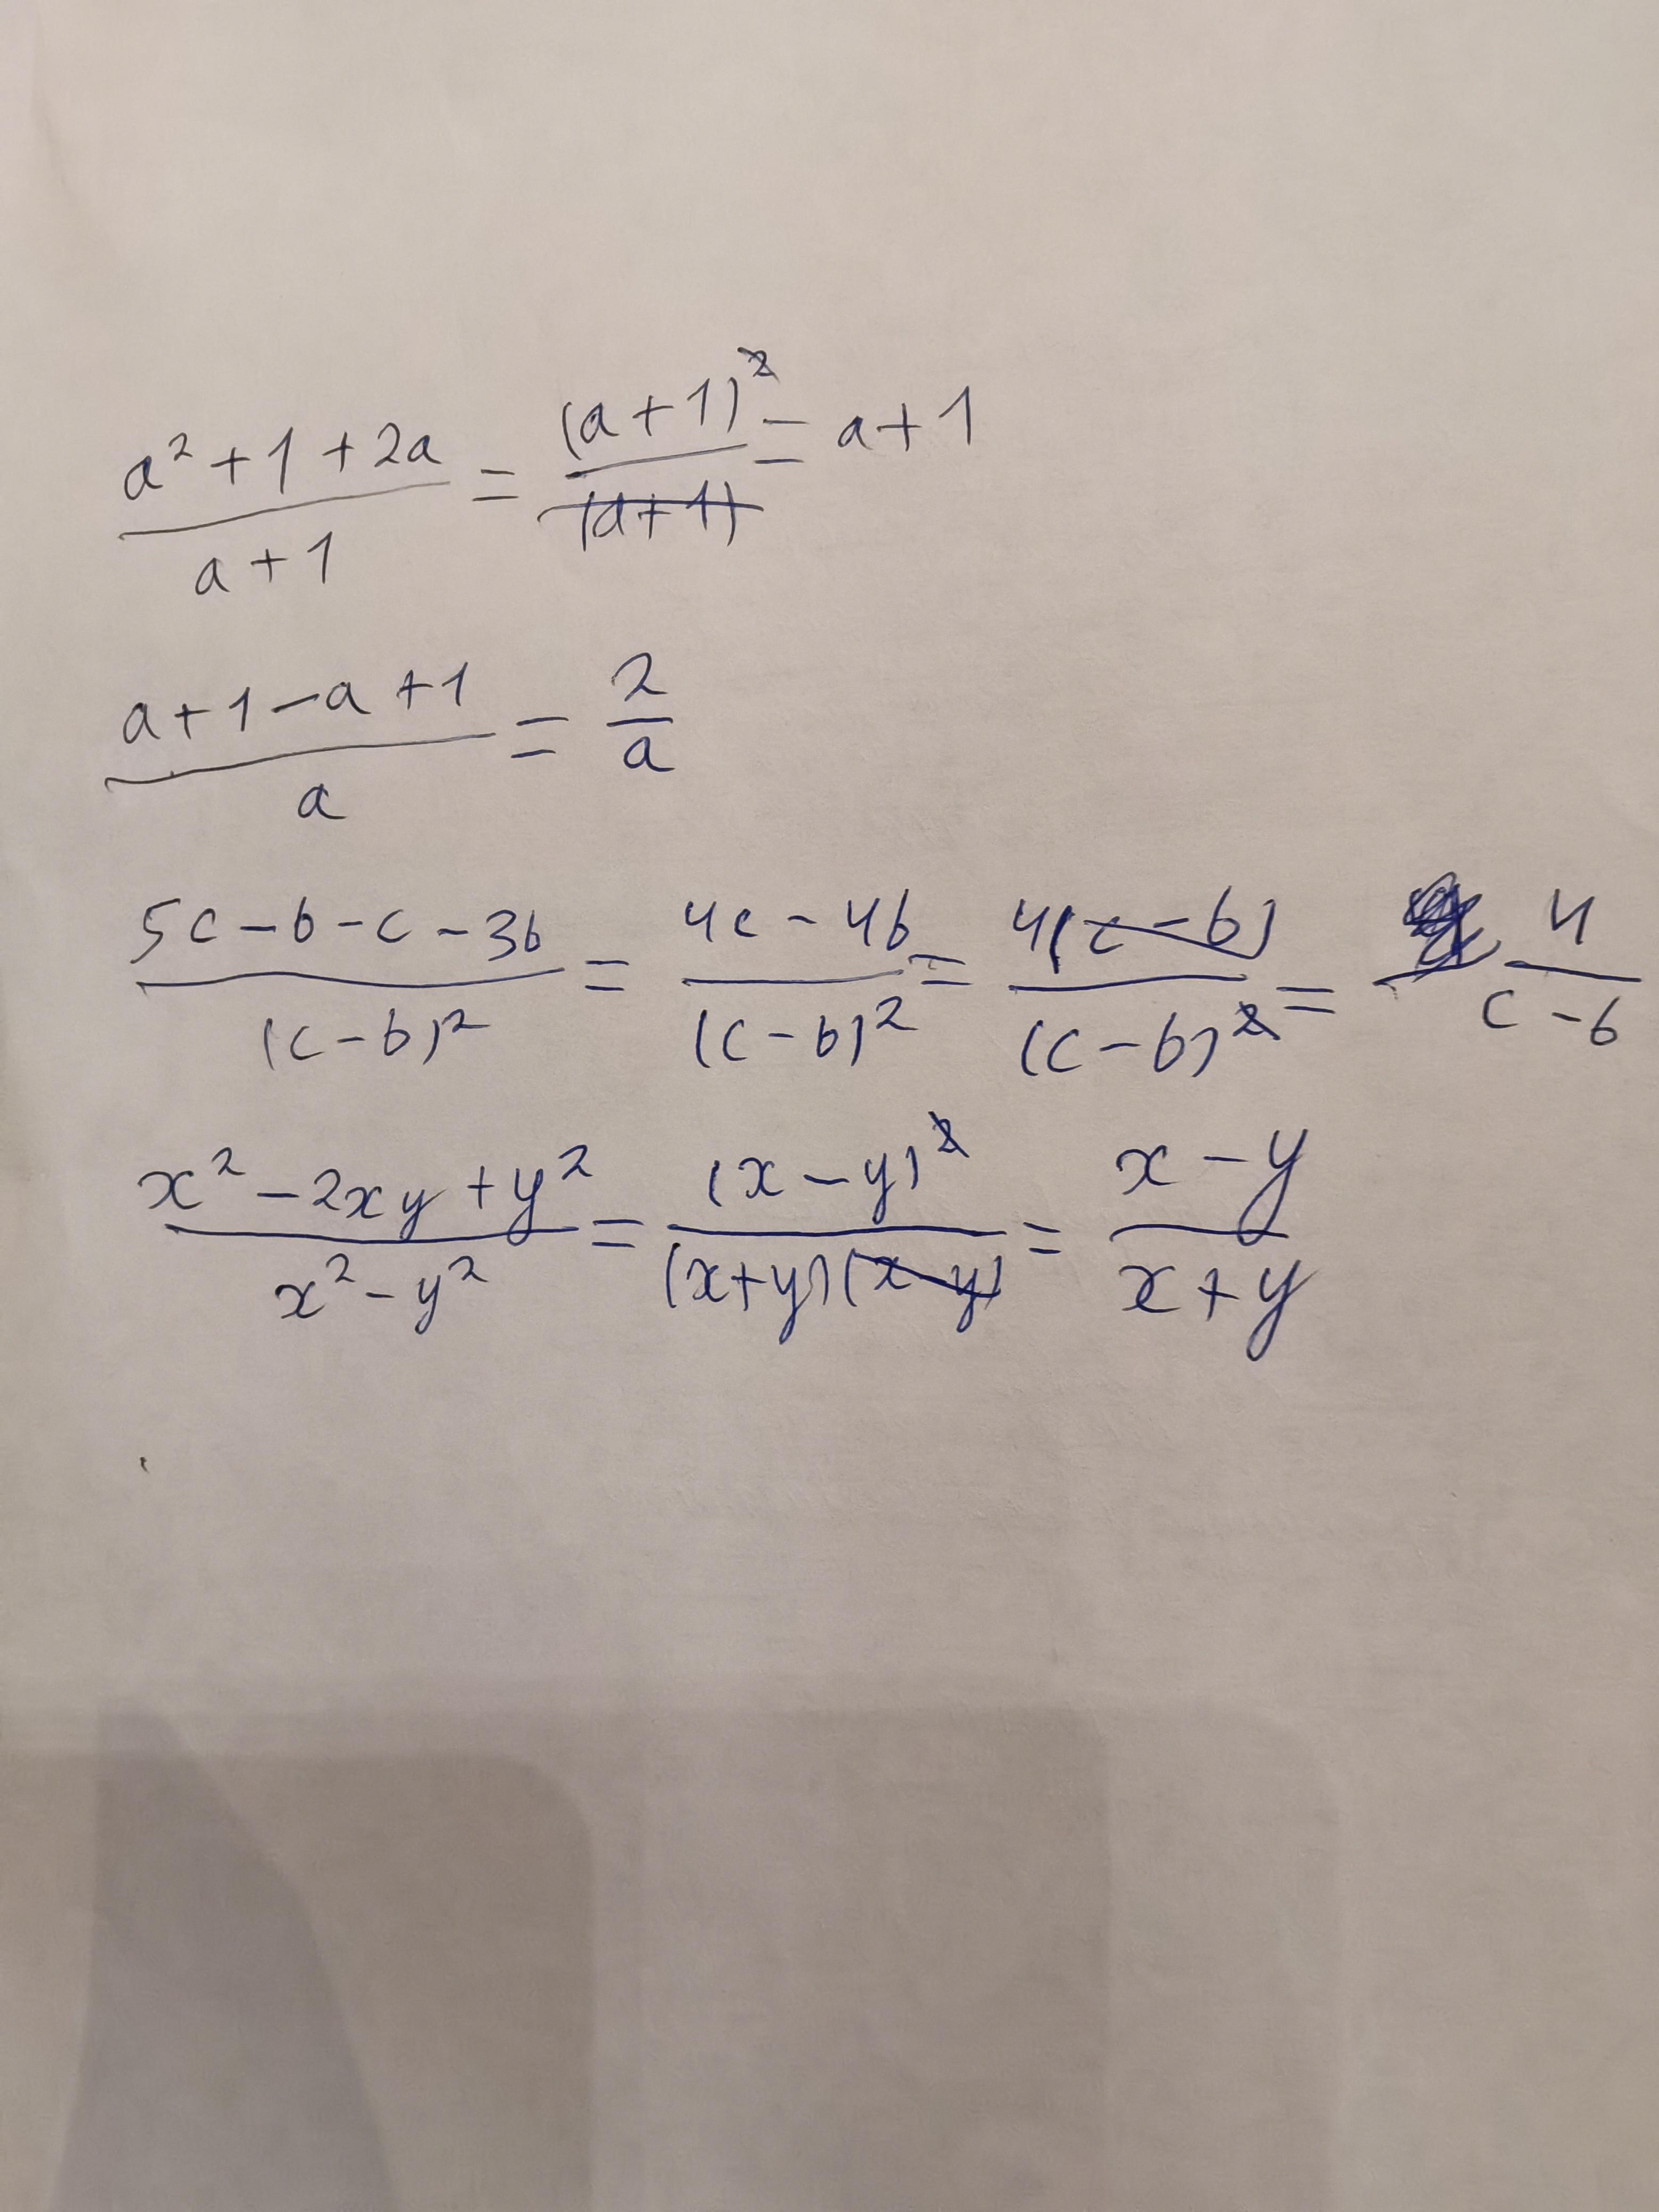 (a² + 1 + 2a)/(a + 1) = (a + 1)²/(a + 1) = a + 1
(a + 1 - a + 1)/a = 2/a
(5c - b - c - 3b)/(c - b)² = (4c - 4b)/(c - b)² = 4(c - b)/(c - b)² = 4/(c - b)
(x² - 2xy + y²)/(x² - y²) = (x - y)²/((x + y)(x - y)) = (x - y)/(x + y)